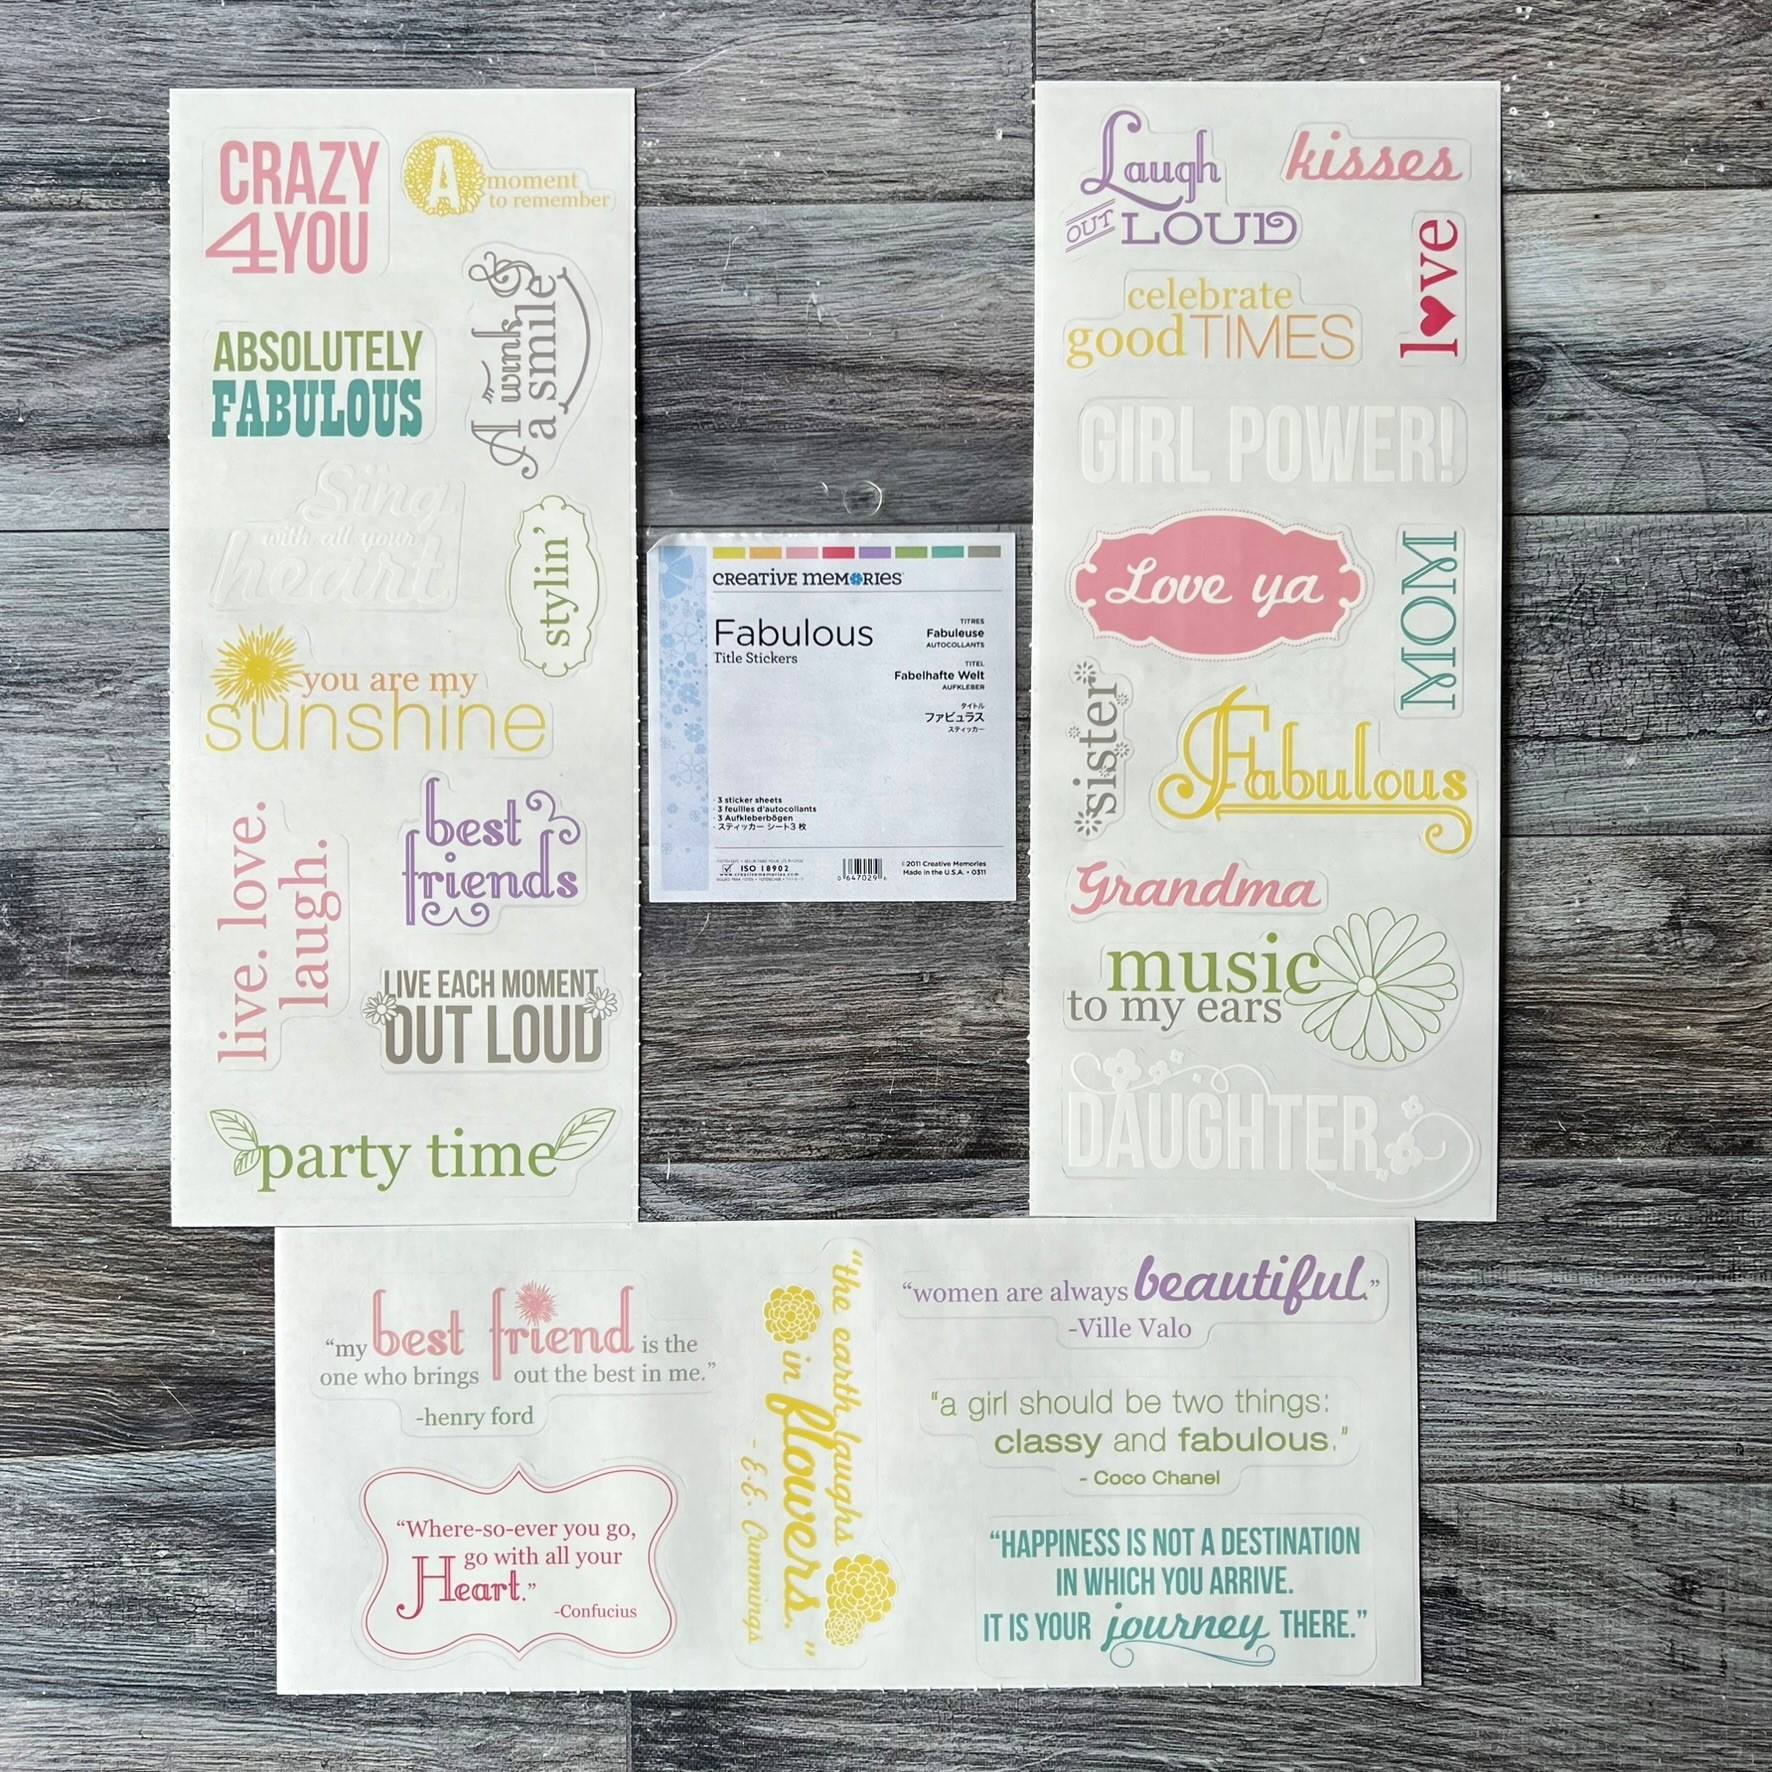 CRAZY
4YOU
A moment
to remember
A wink &
a smile
ABSOLUTELY
FABULOUS
Sing
with all your
heart
stylin'
you are my
sunshine
best
friends
live. love.
laugh.
LIVE EACH MOMENT
OUT LOUD
party time
CREATIVE MEMORIES
Fabulous
Title Stickers
TITRES
Fabuleuse
AUTOCOLLANTS
TITEL
Fabelhafte Welt
AUFKLEBER
タイトル
ファビュラス
スティッカー
· 3 sticker sheets
· 3 feuilles d'autocollants
· 3 Aufkleberbögen
· スティッカー シート3 枚
ISO 18902
www.creativememories.com
0 647029 6
©2011 Creative Memories
Made in the U.S.A. • 0311
Laugh
OUT LOUD
kisses
love
celebrate
good TIMES
GIRL POWER!
Love ya
MOM
sister
Fabulous
Grandma
music
to my ears
DAUGHTER
“my best friend is the
one who brings out the best in me.”
-henry ford
“Where-so-ever you go,
go with all your
Heart.”
-Confucius
“the earth laughs
in flowers.”
- E.E. Cummings
“women are always beautiful.”
-Ville Valo
“a girl should be two things:
classy and fabulous.”
- Coco Chanel
“HAPPINESS IS NOT A DESTINATION
IN WHICH YOU ARRIVE.
IT IS YOUR journey THERE.”